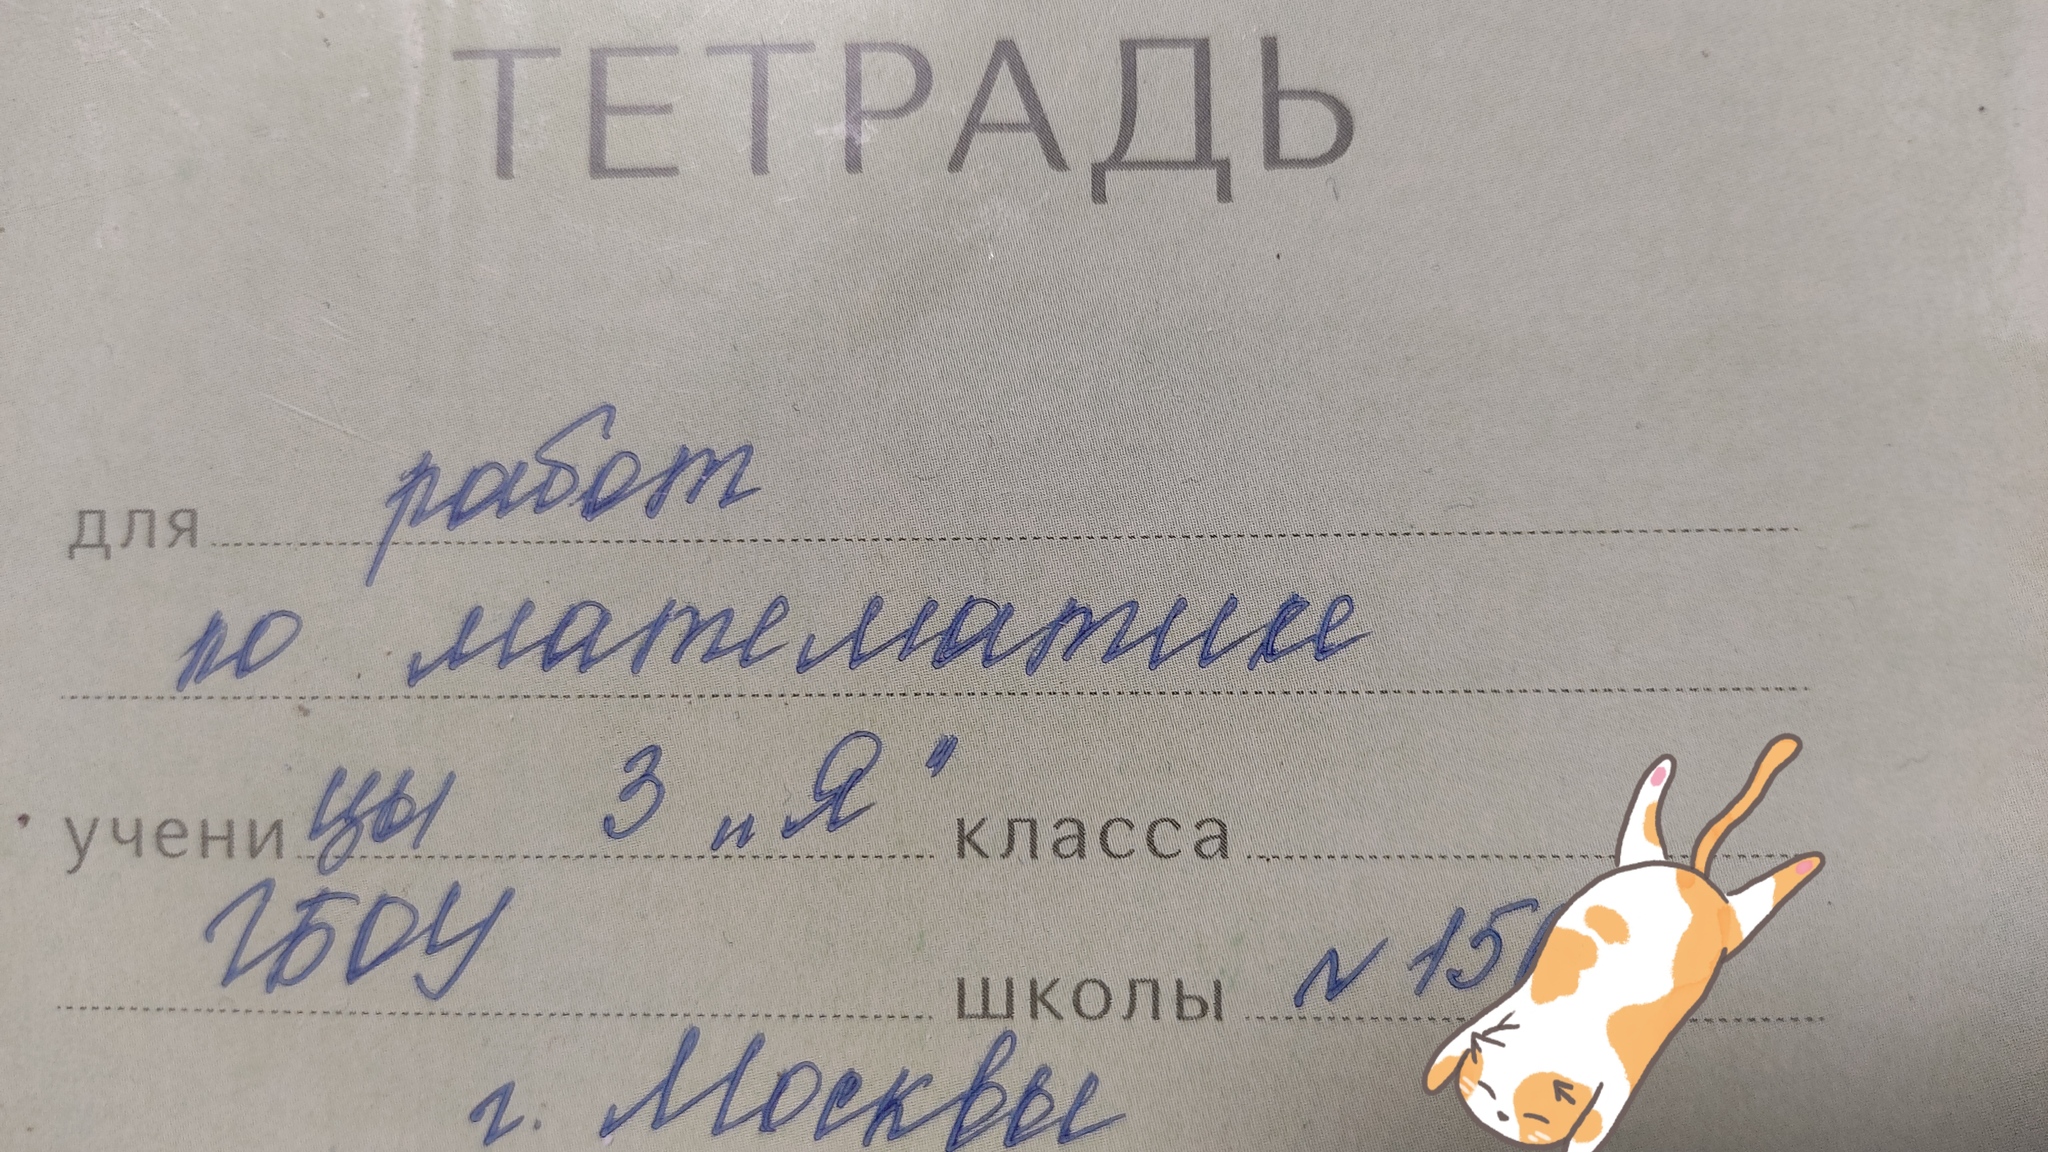 ТЕТРАДЬ
для работ
по математике
ученицы 3 „Я" класса
ГБОУ школы №
г. Москвы